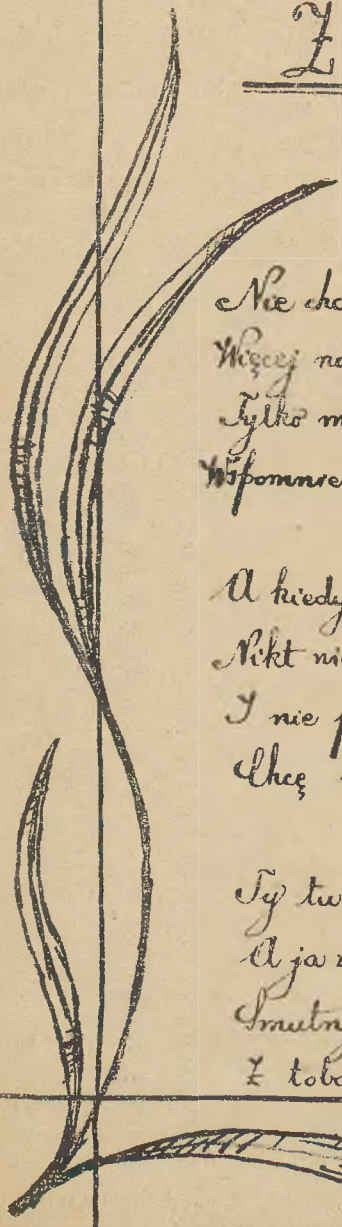 Ż
Nie chc
Więcej na
Tylko m
Wspomnie
A kiedy
Nikt nie
I nie p
Chcę
Ty tu
A ja
Smutn
Z tobą